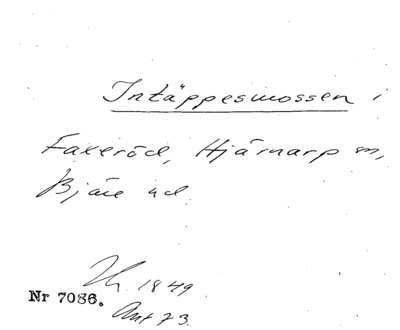 Intäppesmossen i
Faxeröd, Hjärnarp sn,
Bjäre hd.
Th. 1849
Nr 7086.
Ant 73.